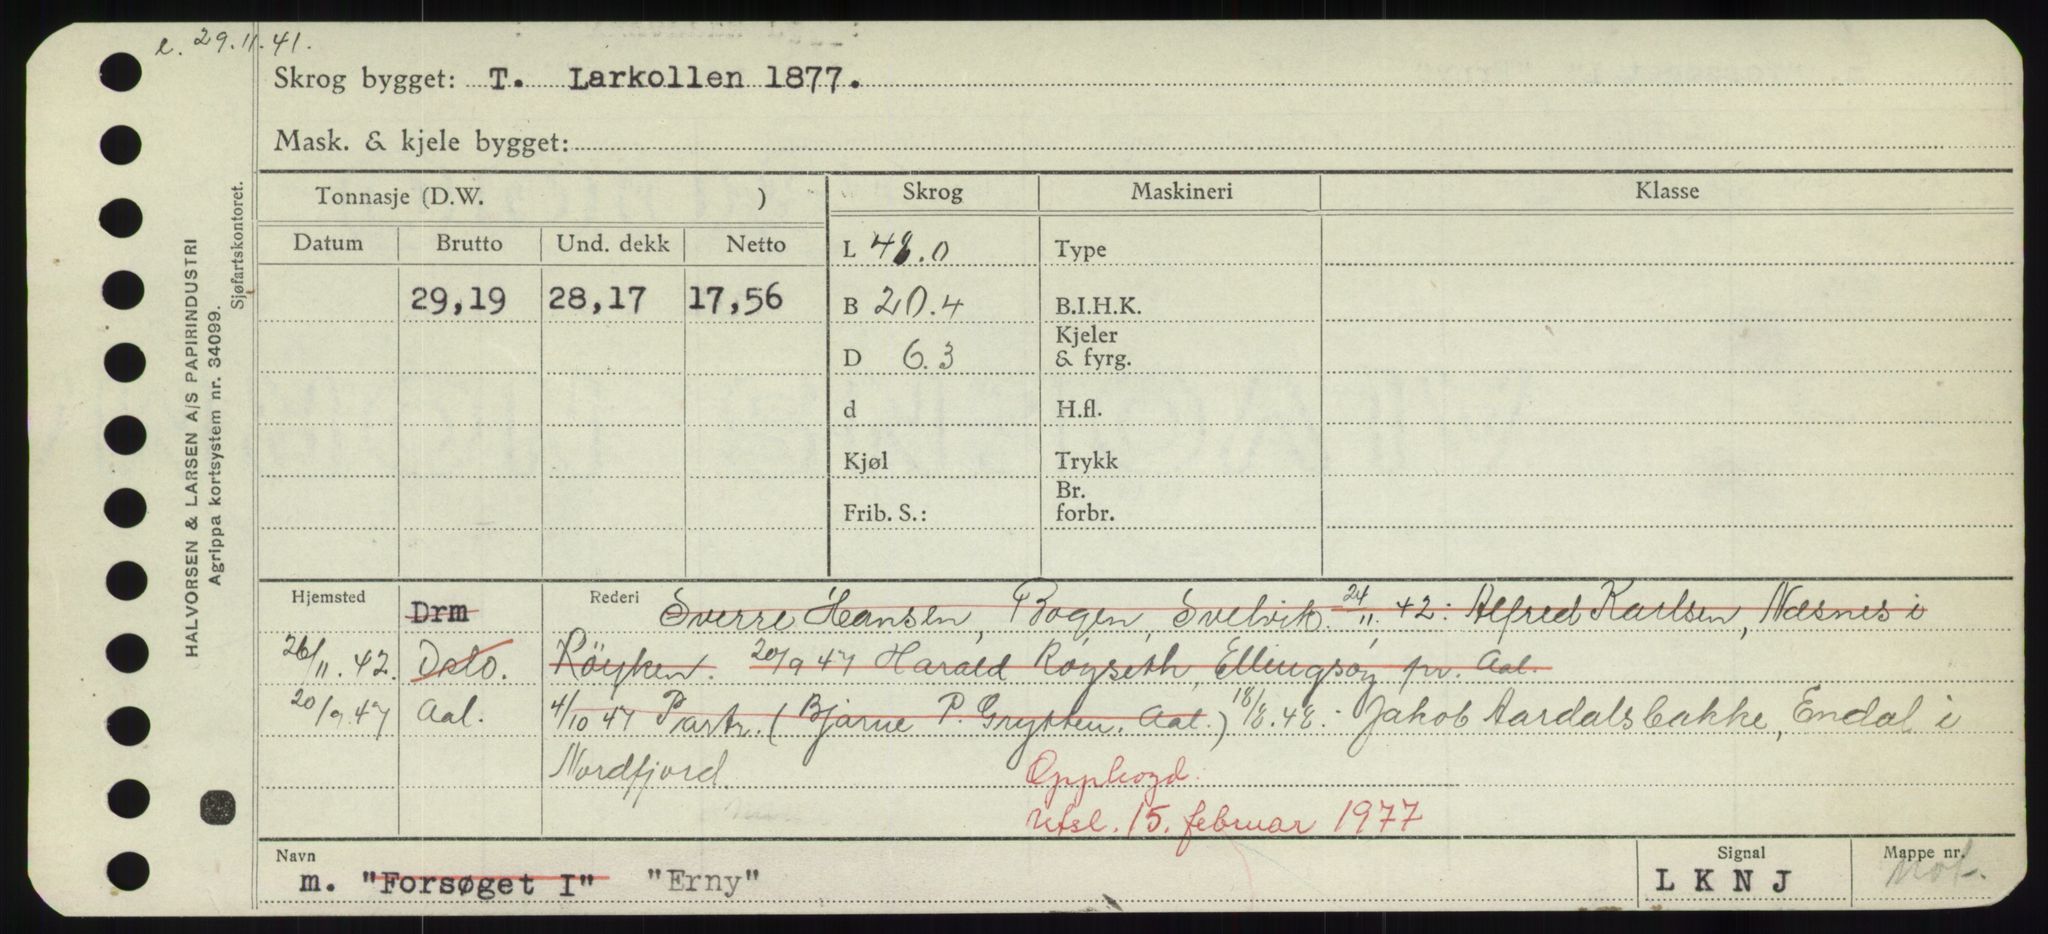 e. 29.11.41.
Skrog bygget: T. Larkollen 1877.
Mask. & kjele bygget:
Tonnasje (D.W. ) Skrog Maskineri Klasse
Datum Brutto Und. dekk Netto
L 48.0 Type
29,19 28,17 17,56 B 20.4 B.I.H.K.
D 6.3 Kjeler & fyrg.
d H.fl.
Kjøl Trykk
Frib. S.: Br. forbr.
Hjemsted Drm Rederi Sverre Hansen, Bogen, Svelvik. 24/11.42: Alfred Karlsen, Næsnes i
26/11.42. Oslo. Röyken. 20/9 47 Harald Røyseth, Ellingsøy pr. Aal.
20/9.47 Aal. 4/10 47 Partr. (Bjarne P. Grytten. Aal.) 18/8.48.: Jakob Aardalsbakke, Endal i
Nordfjord. Opphogd.
Utsl. 15. februar 1977
Navn Signal Mappe nr.
m. "Forsøget I" "Erny" LKNJ mot.
HALVORSEN & LARSEN A/S PAPIRINDUSTRI
Agrippa kortsystem nr. 34099.
Sjøfartskontoret.